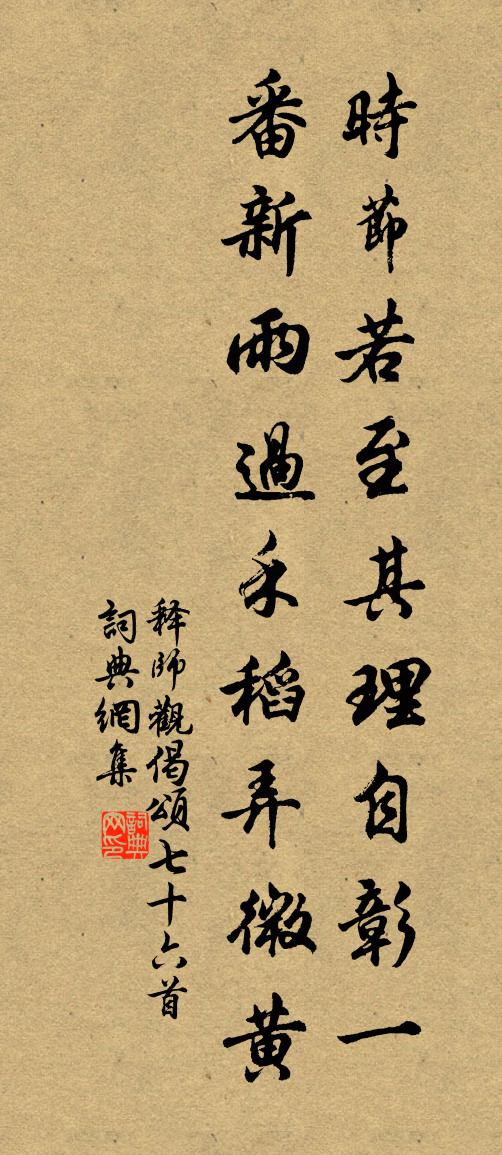 時節若至其理自彰一
番新雨過禾稻弄微黄
释師觀偈頌七十六首
詞典網集
詞典网印